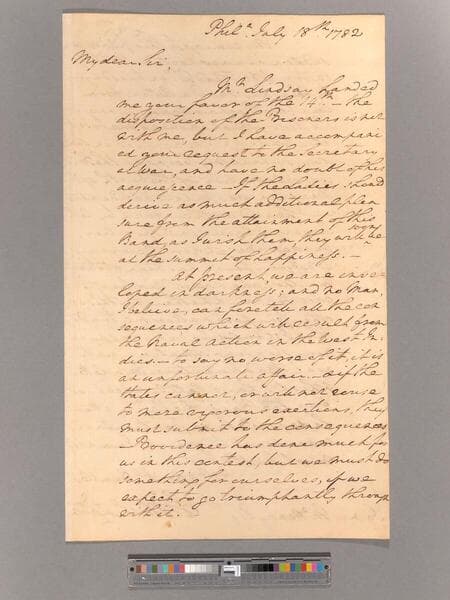 Phila. July 18th. 1782
My dear Sir,
Mr. Lindsay handed
me your favor of the 14th.— the
disposition of the Prisoners is not
with me, but I have accompani
ed your request to the Secretary
at War, and have no doubt of his
acquiescence— If the Ladies should
derive as much additional plea
sure from the attainment of this
Band, as I wish them, they will soon be
at the summit of happiness.—
At present, we are enve-
loped in darkness; and no Man,
I believe, can foretell all the con
sequences which will result from
the Naval action in the West In-
dies.— to say no worse of it, it is
an unfortunate affair.— & if the
States cannot, or will not rouse
to more vigorous exertions, they
must submit to the consequences
—Providence has done much for
us in this contest, but we must do
something for ourselves, if we
expect to go triumphantly through
with it.